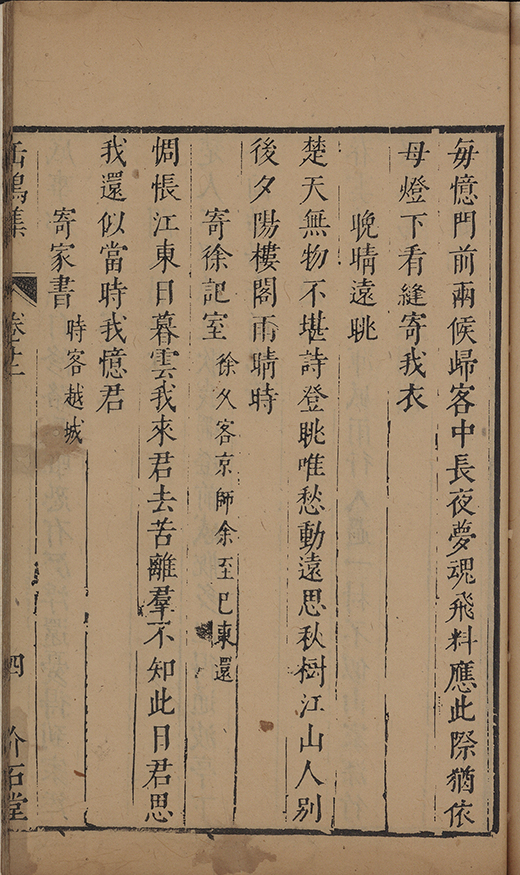 每憶門前兩候歸客中長夜夢魂飛料應此際猶依
母燈下看縫寄我衣
晚晴遠眺
楚天無物不堪詩登眺唯愁動遠思秋樹江山人別
後夕陽樓閣雨晴時
寄徐記室 徐久客京師余至已東還
惆悵江東日暮雲我來君去苦離羣不知此日君思
我還似當時我憶君
寄家書 時客越城
鳴集 卷十二 四 介石堂